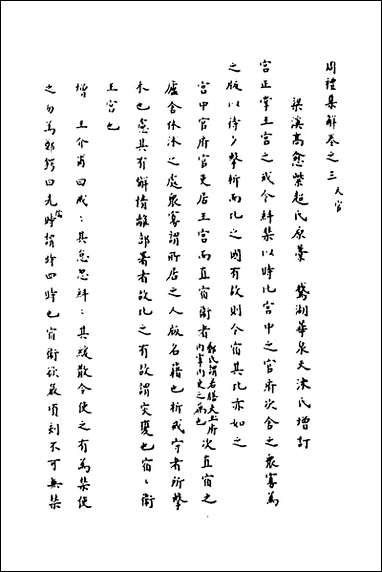 周禮集解卷之三 天官
梁溪高愈紫超氏原纂 鵝湖華泉天沐氏增訂
宮正掌王宮之戒令糾禁以時比宮中之官府次舍之衆寡爲
之版以待夕擊柝而比之國有故則令宿其比亦如之
宮中官府官吏居王宮而直宿衛者 鄭氏謂若膳夫玉府內宰內史之屬也 次直宿之
廬舍休沐之處衆寡謂所居之人版名籍也柝戒守者所擊
木也慮其有懈惰離部署者故比之有故謂災變也宿宿衛
王宮也
增 王介甫曰戒戒其怠忽糾糾其緩散令使之有爲禁使
之勿爲鄭鍔曰先儒時謂時四時也宿衛欲嚴頃刻不可無禁